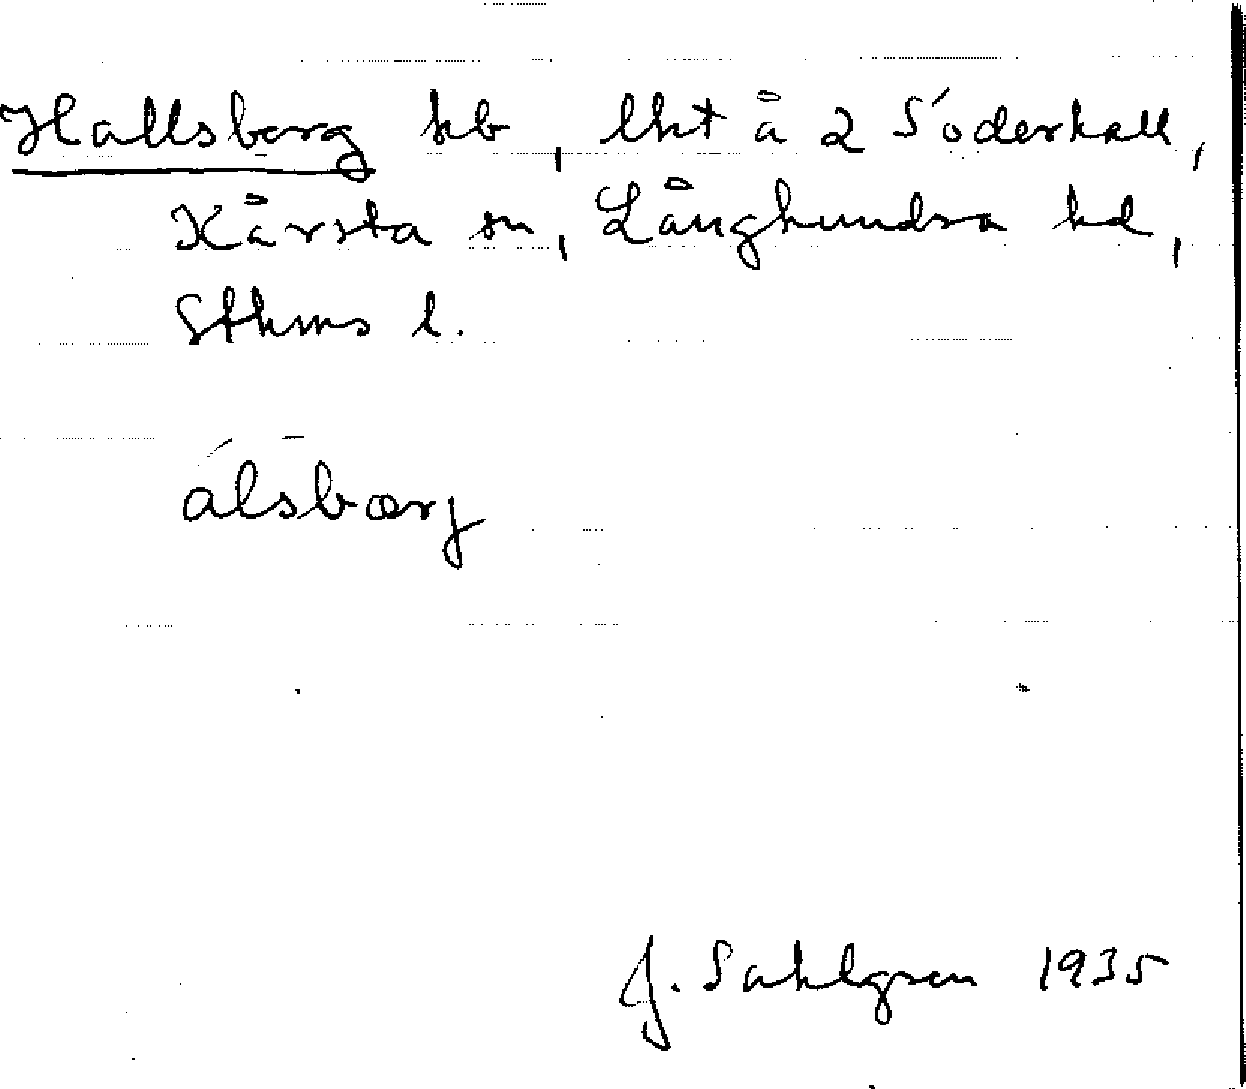 Hallsborg hb, lht å 2 Söderhall,
Kårsta sn, Långhundra hd,
Sthms l.
álsbærj
J. Sahlgren 1935